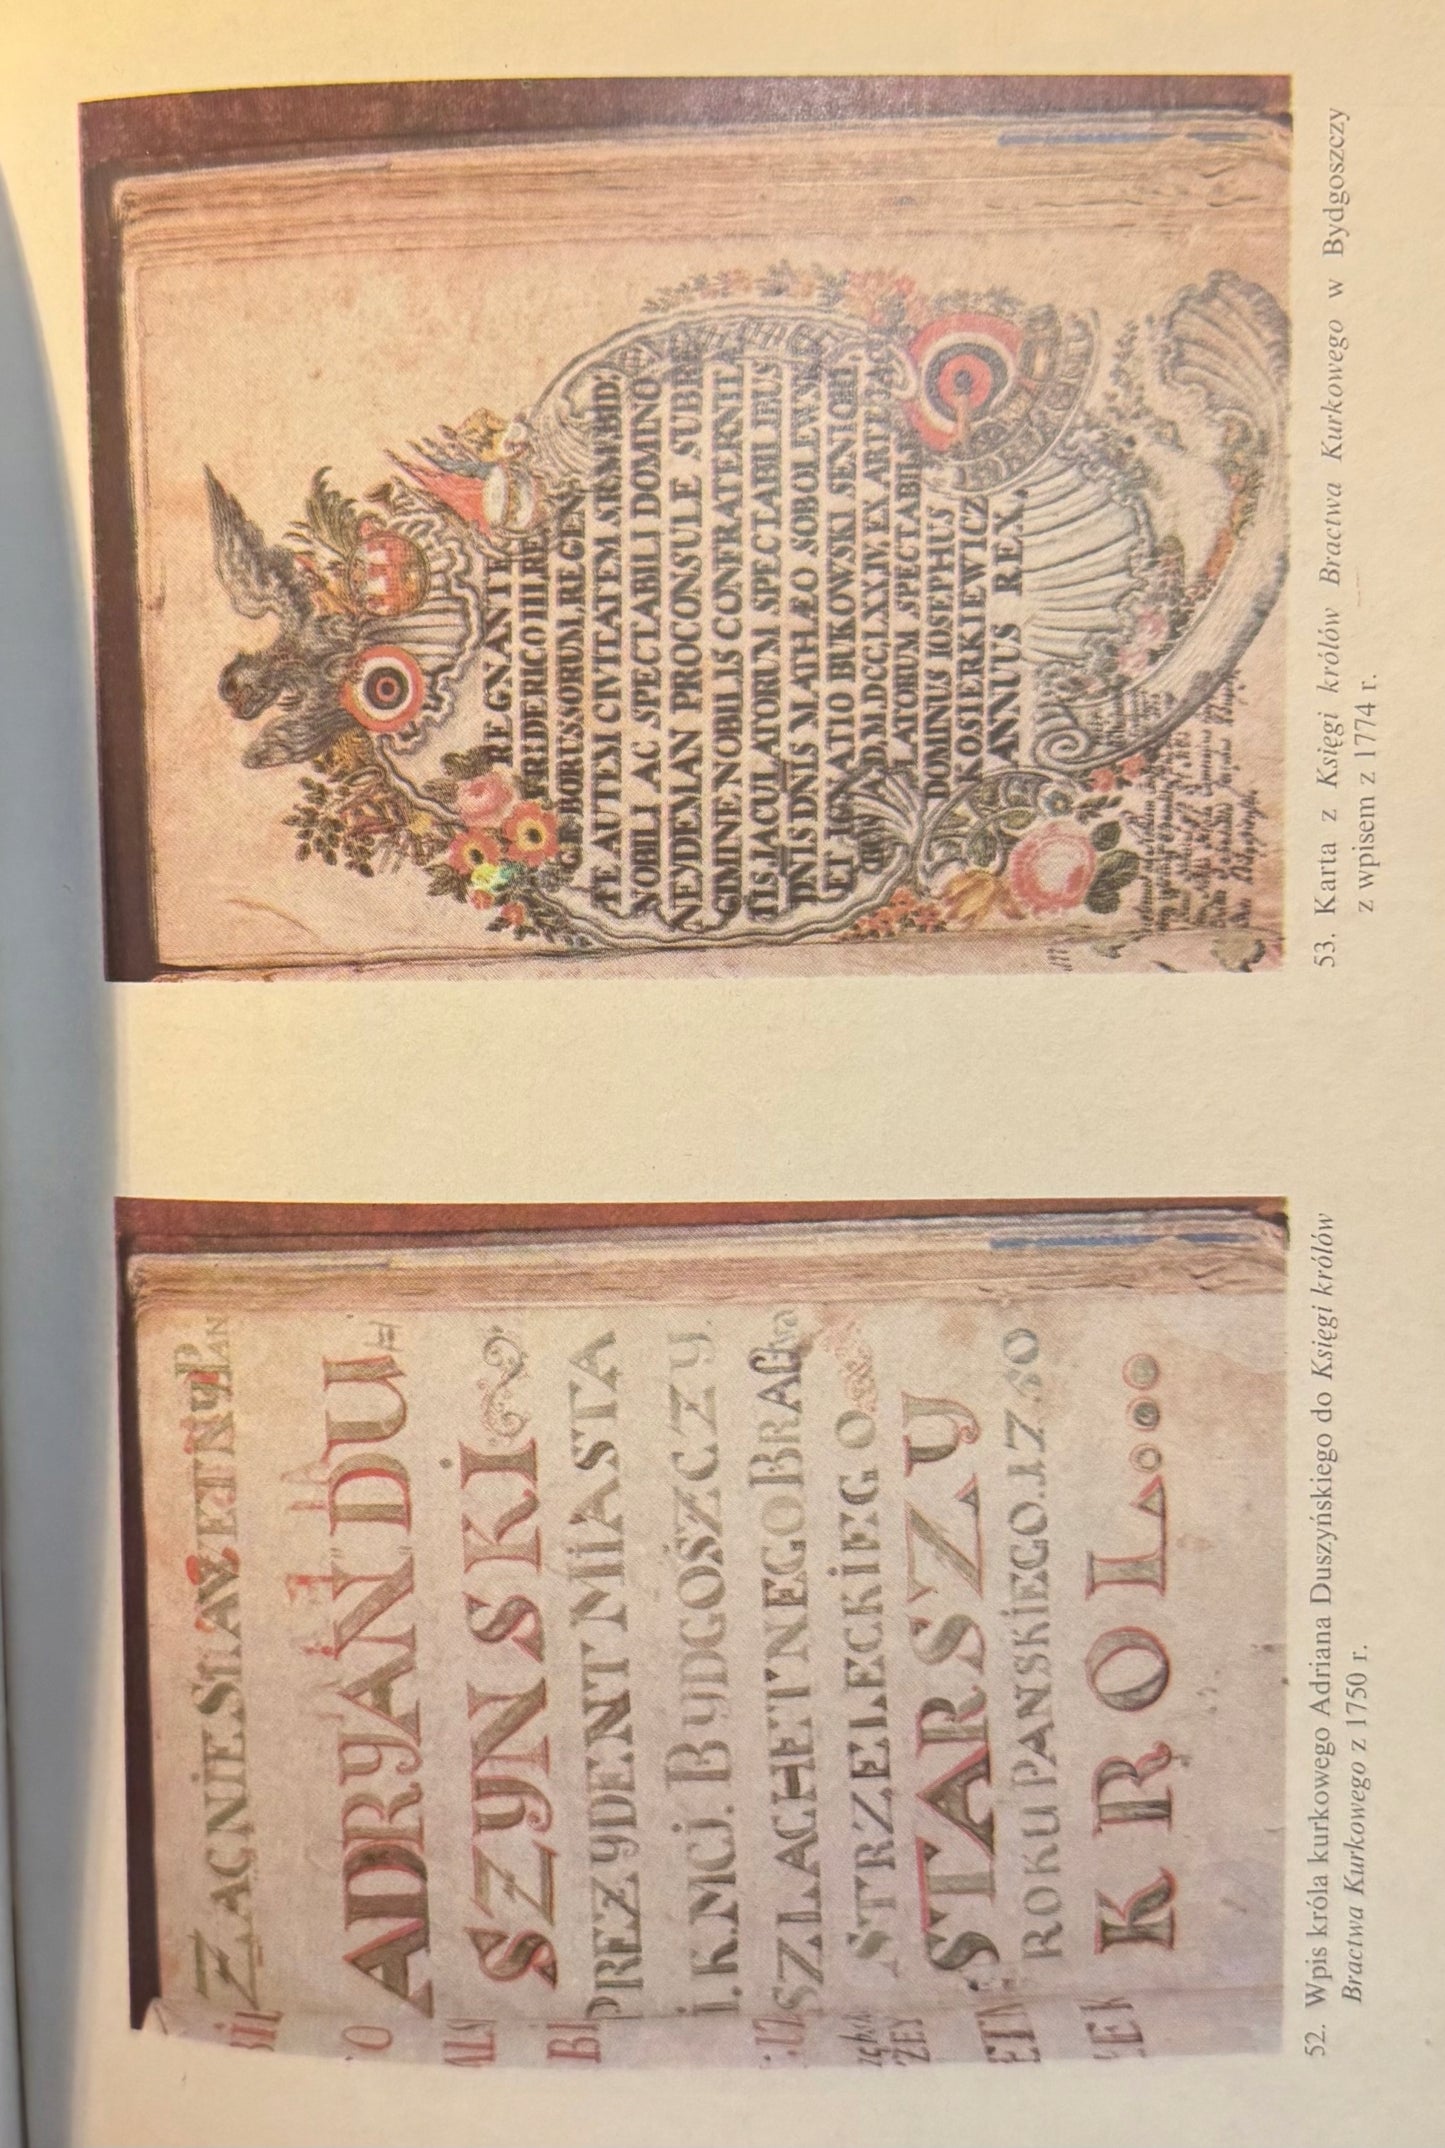 ZACNIE SŁAWETNY PAN
ADRYAN DU
SZYNSKI
PREZYDENT MIASTA
I.K.MCI. BYDGOSZCZY.
SZLACHETNEGO BRAC
STRZELECKIEGO
STARSZY
ROKU PANSKIEGO.17.50
KROL
52. Wpis króla kurkowego Adriana Duszyńskiego do Księgi królów
Bractwa Kurkowego z 1750 r.
REGNANTE
FRIDERICO III, RE
GE BORUSSORUM, REGEN
TE AUTEM CIVITATEM SRMBID:
NOBILI AC SPECTABILI DOMINO
NEYDEMAN PROCONSULE SUBRE
GIMINE NOBILIS CONFRATERNITA
TIS JACULATORUM SPECTABILIBUS
DNIS DNIS MATHÆO SOBOLEWSKI
ET IGNATIO BUKOWSKI SENIORI
A,D,M,DCC,LXXIV, EX ARTE JAC
LATORUM SPECTABILIS
DOMINUS IOSEPHUS
KOSIERKIEWICZ
ANNUUS REX.
53. Karta z Księgi królów Bractwa Kurkowego w Bydgoszczy
z wpisem z 1774 r.